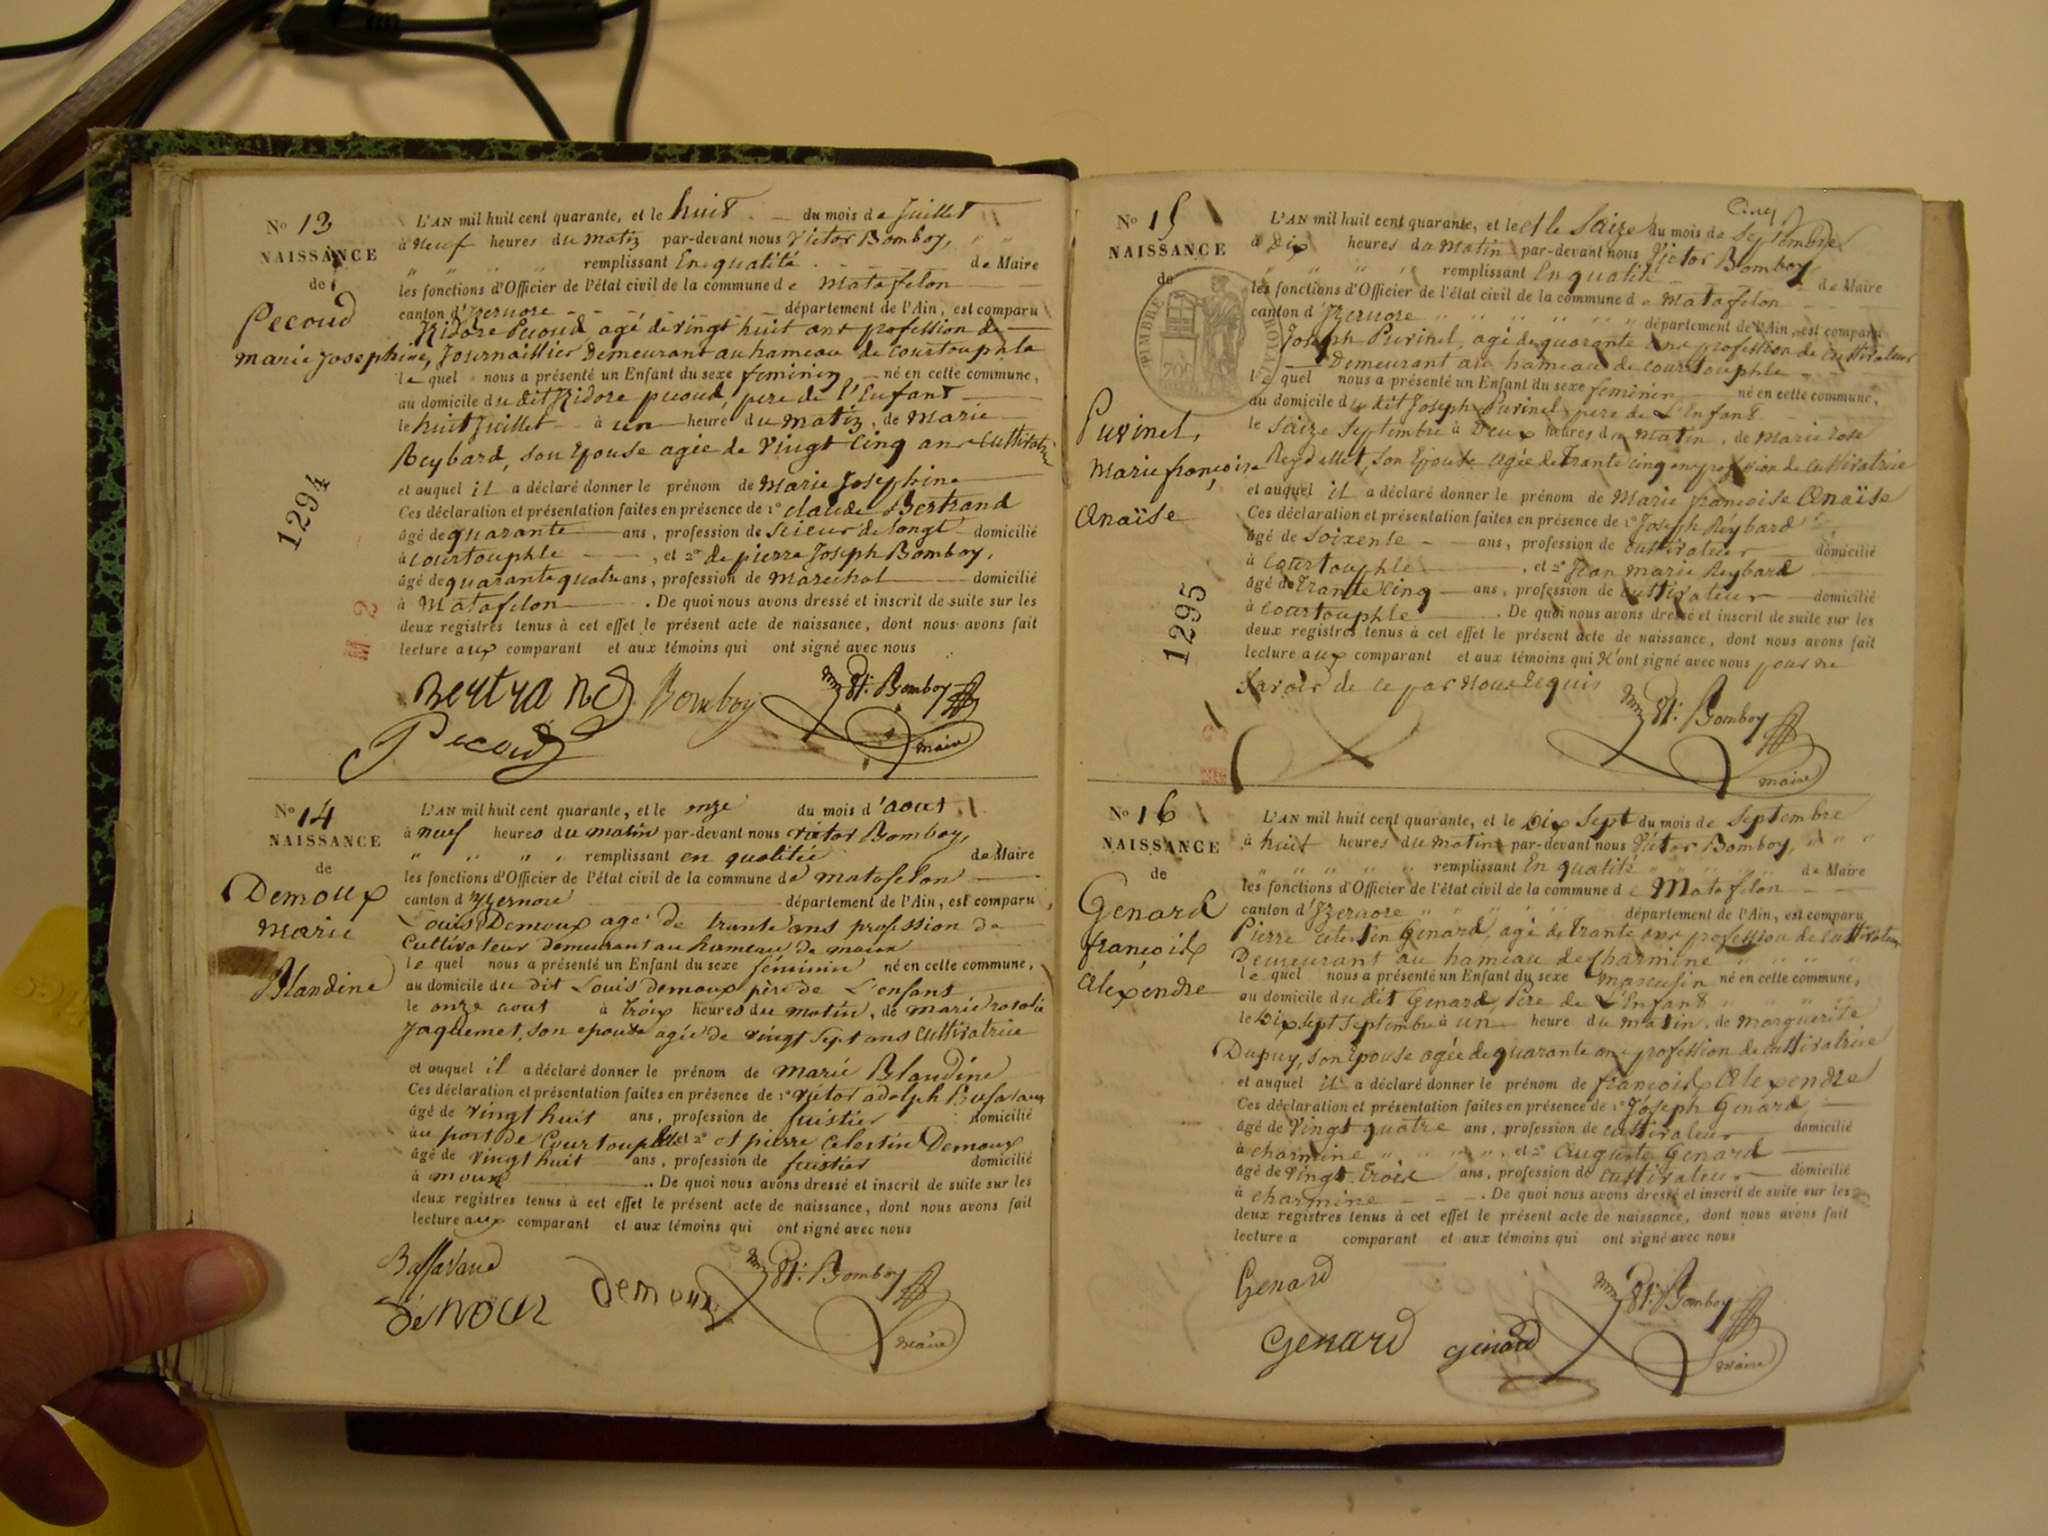 No 13
NAISSANCE
de
Pecoud
marie Josephine,
1294
L'AN mil huit cent quarante, et le huit du mois de Juillet
à neuf heures du matin par-devant nous Victor Bomboy,
remplissant En qualité de Maire
les fonctions d'Officier de l'état civil de la commune de Matafelon
canton d'Izernore département de l'Ain, est comparu
Isidore Pecoud agé de vingt huit ans profession de
Journaillier Demeurant au hameau de courtouphle
le quel nous a présenté un Enfant du sexe feminin né en cette commune,
au domicile du dit Isidore pecoud, pere de l'Enfant
le huit Juillet à un heure du matin, de Marie
Reybard, son Epouse agée de vingt cinq ans Cultivatrice
et auquel il a déclaré donner le prénom de Marie Josephine
Ces déclaration et présentation faites en présence de 1° claude Bertrand
âgé de quarante ans, profession de Scieur de longt domicilié
à courtouphle, et 2° de pierre Joseph Bomboy,
âgé de quarante quatre ans, profession de Marechal domicilié
à Matafelon. De quoi nous avons dressé et inscrit de suite sur les
deux registres tenus à cet effet le présent acte de naissance, dont nous avons fait
lecture aux comparant et aux témoins qui ont signé avec nous
Bertrand Bomboy Bomboy
Pecoud maire
No 14
NAISSANCE
de
Demoux
Marie
Blandine
L'AN mil huit cent quarante, et le onze du mois d'aout
à neuf heures du matin par-devant nous victor Bomboy,
remplissant en qualitée de Maire
les fonctions d'Officier de l'état civil de la commune de matafelon
canton d'Izernore département de l'Ain, est comparu,
Louis Demoux agé de trante ans profession de
Cultivateur demeurant au hameau de
le quel nous a présenté un Enfant du sexe féminin né en cette commune,
au domicile du dit Louis demoux père de L'enfant
le onze aout à trois heures du matin, de marie rosalie
Jaquemet, son epouse agée de vingt sept ans Cultivatrice
et auquel il a déclaré donner le prénom de Marie Blandine
Ces déclaration et présentation faites en présence de 1° victor adolph
âgé de vingt huit ans, profession de fustier domicilié
au port de Courtouphle et 2° et pierre celestin Demoux
âgé de vingt huit ans, profession de fustier domicilié
à. De quoi nous avons dressé et inscrit de suite sur les
deux registres tenus à cet effet le présent acte de naissance, dont nous avons fait
lecture aux comparant et aux témoins qui ont signé avec nous
Bomboy
Demoux maire
No 15
NAISSANCE
de
TIMBRE ROYAL
Purinel,
Marie françoise
Anaïse
1295
L'AN mil huit cent quarante, et le et le Saize du mois de Septembre
à Dix heures du Matin par-devant nous Victor Bomboy
remplissant En qualité de Maire
les fonctions d'Officier de l'état civil de la commune de Matafelon
canton d'Izernore département de l'Ain, est comparu
Joseph Purinel, agé de quarante ans profession de cultivateur
Demeurant au hameau de courtouphle
le quel nous a présenté un Enfant du sexe feminin né en cette commune,
au domicile du dit Joseph Purinel pere de L'Enfant
le Saize Septembre à Deux heures du Matin, de Marie Rose
Reydellet, son Epouse agée de Trante cinq ans profession de cultivatrice
et auquel il a déclaré donner le prénom de Marie françoise Anaïse
Ces déclaration et présentation faites en présence de 1° Joseph Reybard
âgé de Soixente ans, profession de cultivateur domicilié
à Courtouphle, et 2° Jean Marie Reybard
âgé de Trante Cinq ans, profession de cultivateur domicilié
à Courtouphle. De quoi nous avons dressé et inscrit de suite sur les
deux registres tenus à cet effet le présent acte de naissance, dont nous avons fait
lecture aux comparant et aux témoins qui N'ont signé avec nous pour ne
Savoir de ce par Nous Requis
Bomboy
maire
No 16
NAISSANCE
de
Genard
françoix
alexendre
L'AN mil huit cent quarante, et le Dix Sept du mois de Septembre
à huit heures du Matin par-devant nous Victor Bomboy,
remplissant En qualité de Maire
les fonctions d'Officier de l'état civil de la commune de Matafelon
canton d'Izernore département de l'Ain, est comparu
Pierre Celestin Genard, agé de Trante ans profession de cultivateur
Demeurant au hameau de Charmine
le quel nous a présenté un Enfant du sexe masculin né en cette commune,
au domicile du dit Genard, Père de L'Enfant
le Dix sept Septembre à un heure du Matin, de Marguerite
Dupuy, son Epouse agée de quarante ans profession de cultivatrice
et auquel il a déclaré donner le prénom de françoix Alexendre
Ces déclaration et présentation faites en présence de 1° Joseph Genard
âgé de vingt quatre ans, profession de cultivateur domicilié
à charmine, et 2° Auguste Genard
âgé de vingt trois ans, profession de cultivateur domicilié
à charmine. De quoi nous avons dressé et inscrit de suite sur les
deux registres tenus à cet effet le présent acte de naissance, dont nous avons fait
lecture a comparant et aux témoins qui ont signé avec nous
Genard Bomboy
Genard genard maire